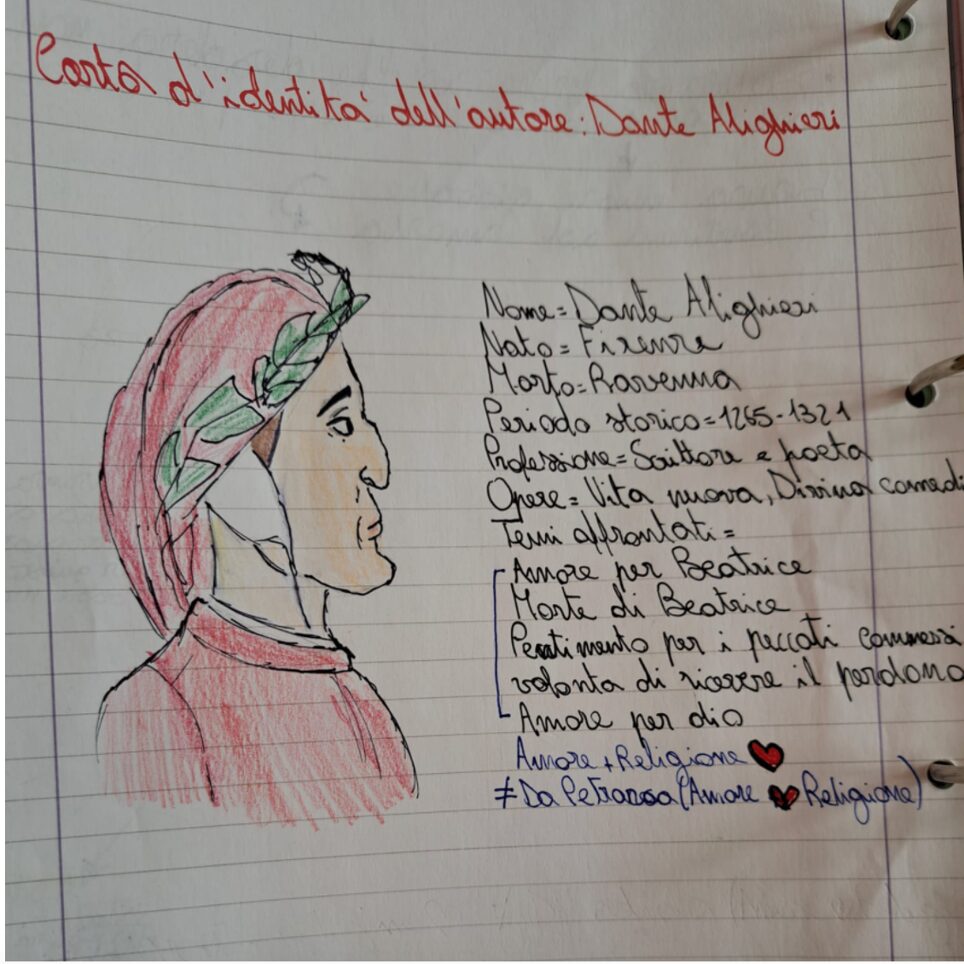 Carta d'identità dell'autore: Dante Alighieri
Nome=Dante Alighieri
Nato=Firenze
Morto=Ravenna
Periodo storico=1265-1321
Professione=Scrittore e poeta
Opere=Vita nuova, Divina comedi
Temi affrontati=
Amore per Beatrice
Morte di Beatrice
Pentimento per i peccati commessi
volonta di ricevere il perdono
Amore per dio
Amore+Religione ❤
≠Da Petrarca(Amore ❤ Religione)